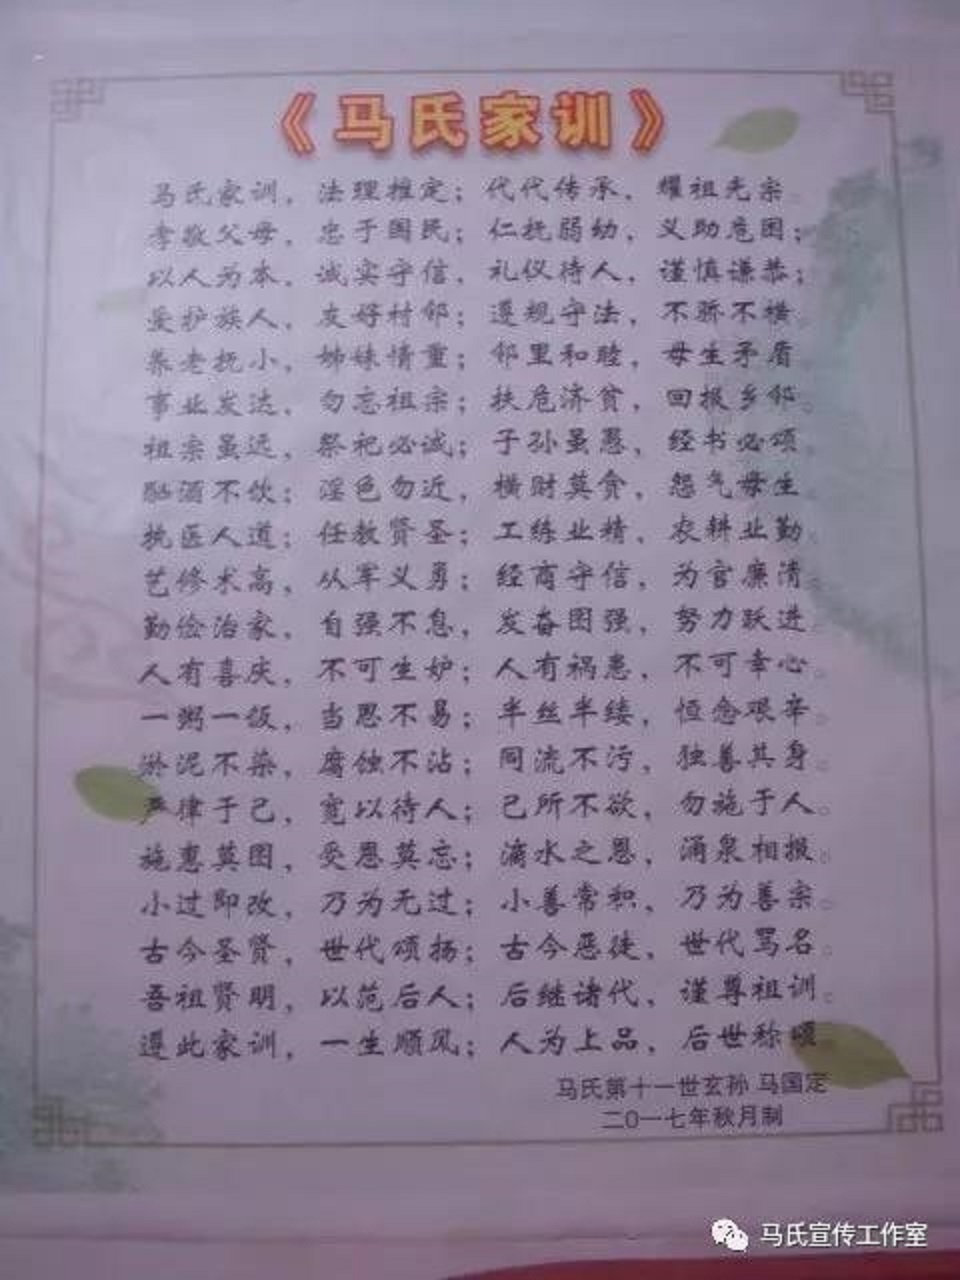 《马氏家训》
马氏家训，法理推定；代代传承，耀祖光宗。
孝敬父母，忠于国民；仁抚弱幼，义助危困；
以人为本，诚实守信，礼仪待人，谨慎谦恭；
爱护族人，友好村邻；遵规守法，不骄不横。
养老抚小，姊妹情重；邻里和睦，毋生矛盾。
事业发达，勿忘祖宗；扶危济贫，回报乡邻。
祖宗虽远，祭祀必诚；子孙虽愚，经书必颂。
酗酒不饮；淫色勿近，横财莫贪，怨气毋生。
执医人道；任教贤圣；工练业精，农耕业勤。
艺修术高，从军义勇；经商守信，为官廉清。
勤俭治家，自强不息，发奋图强，努力跃进。
人有喜庆，不可生妒；人有祸患，不可幸心。
一粥一饭，当思不易；半丝半缕，恒念艰辛。
淤泥不染，腐蚀不沾；同流不污，独善其身。
严律于己，宽以待人；己所不欲，勿施于人。
施惠莫图，受恩莫忘；滴水之恩，涌泉相报。
小过即改，乃为无过；小善常积，乃为善宗。
古今圣贤，世代颂扬；古今恶徒，世代骂名。
吾祖贤明，以范后人；后继诸代，谨尊祖训。
遵此家训，一生顺风；人为上品，后世称颂。
马氏第十一世玄孙 马国定
二〇一七年秋月制
马氏宣传工作室